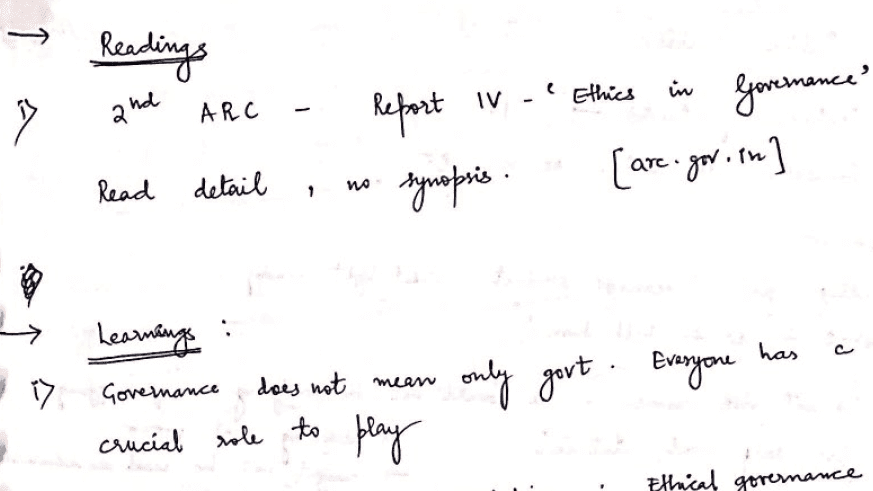 → Readings
i) 2nd ARC - Report IV - 'Ethics in Governance'
Read detail, no synopsis. [arc.gov.in]
→ Learnings :
i) Governance does not mean only govt. Everyone has a
crucial role to play
Ethical governance